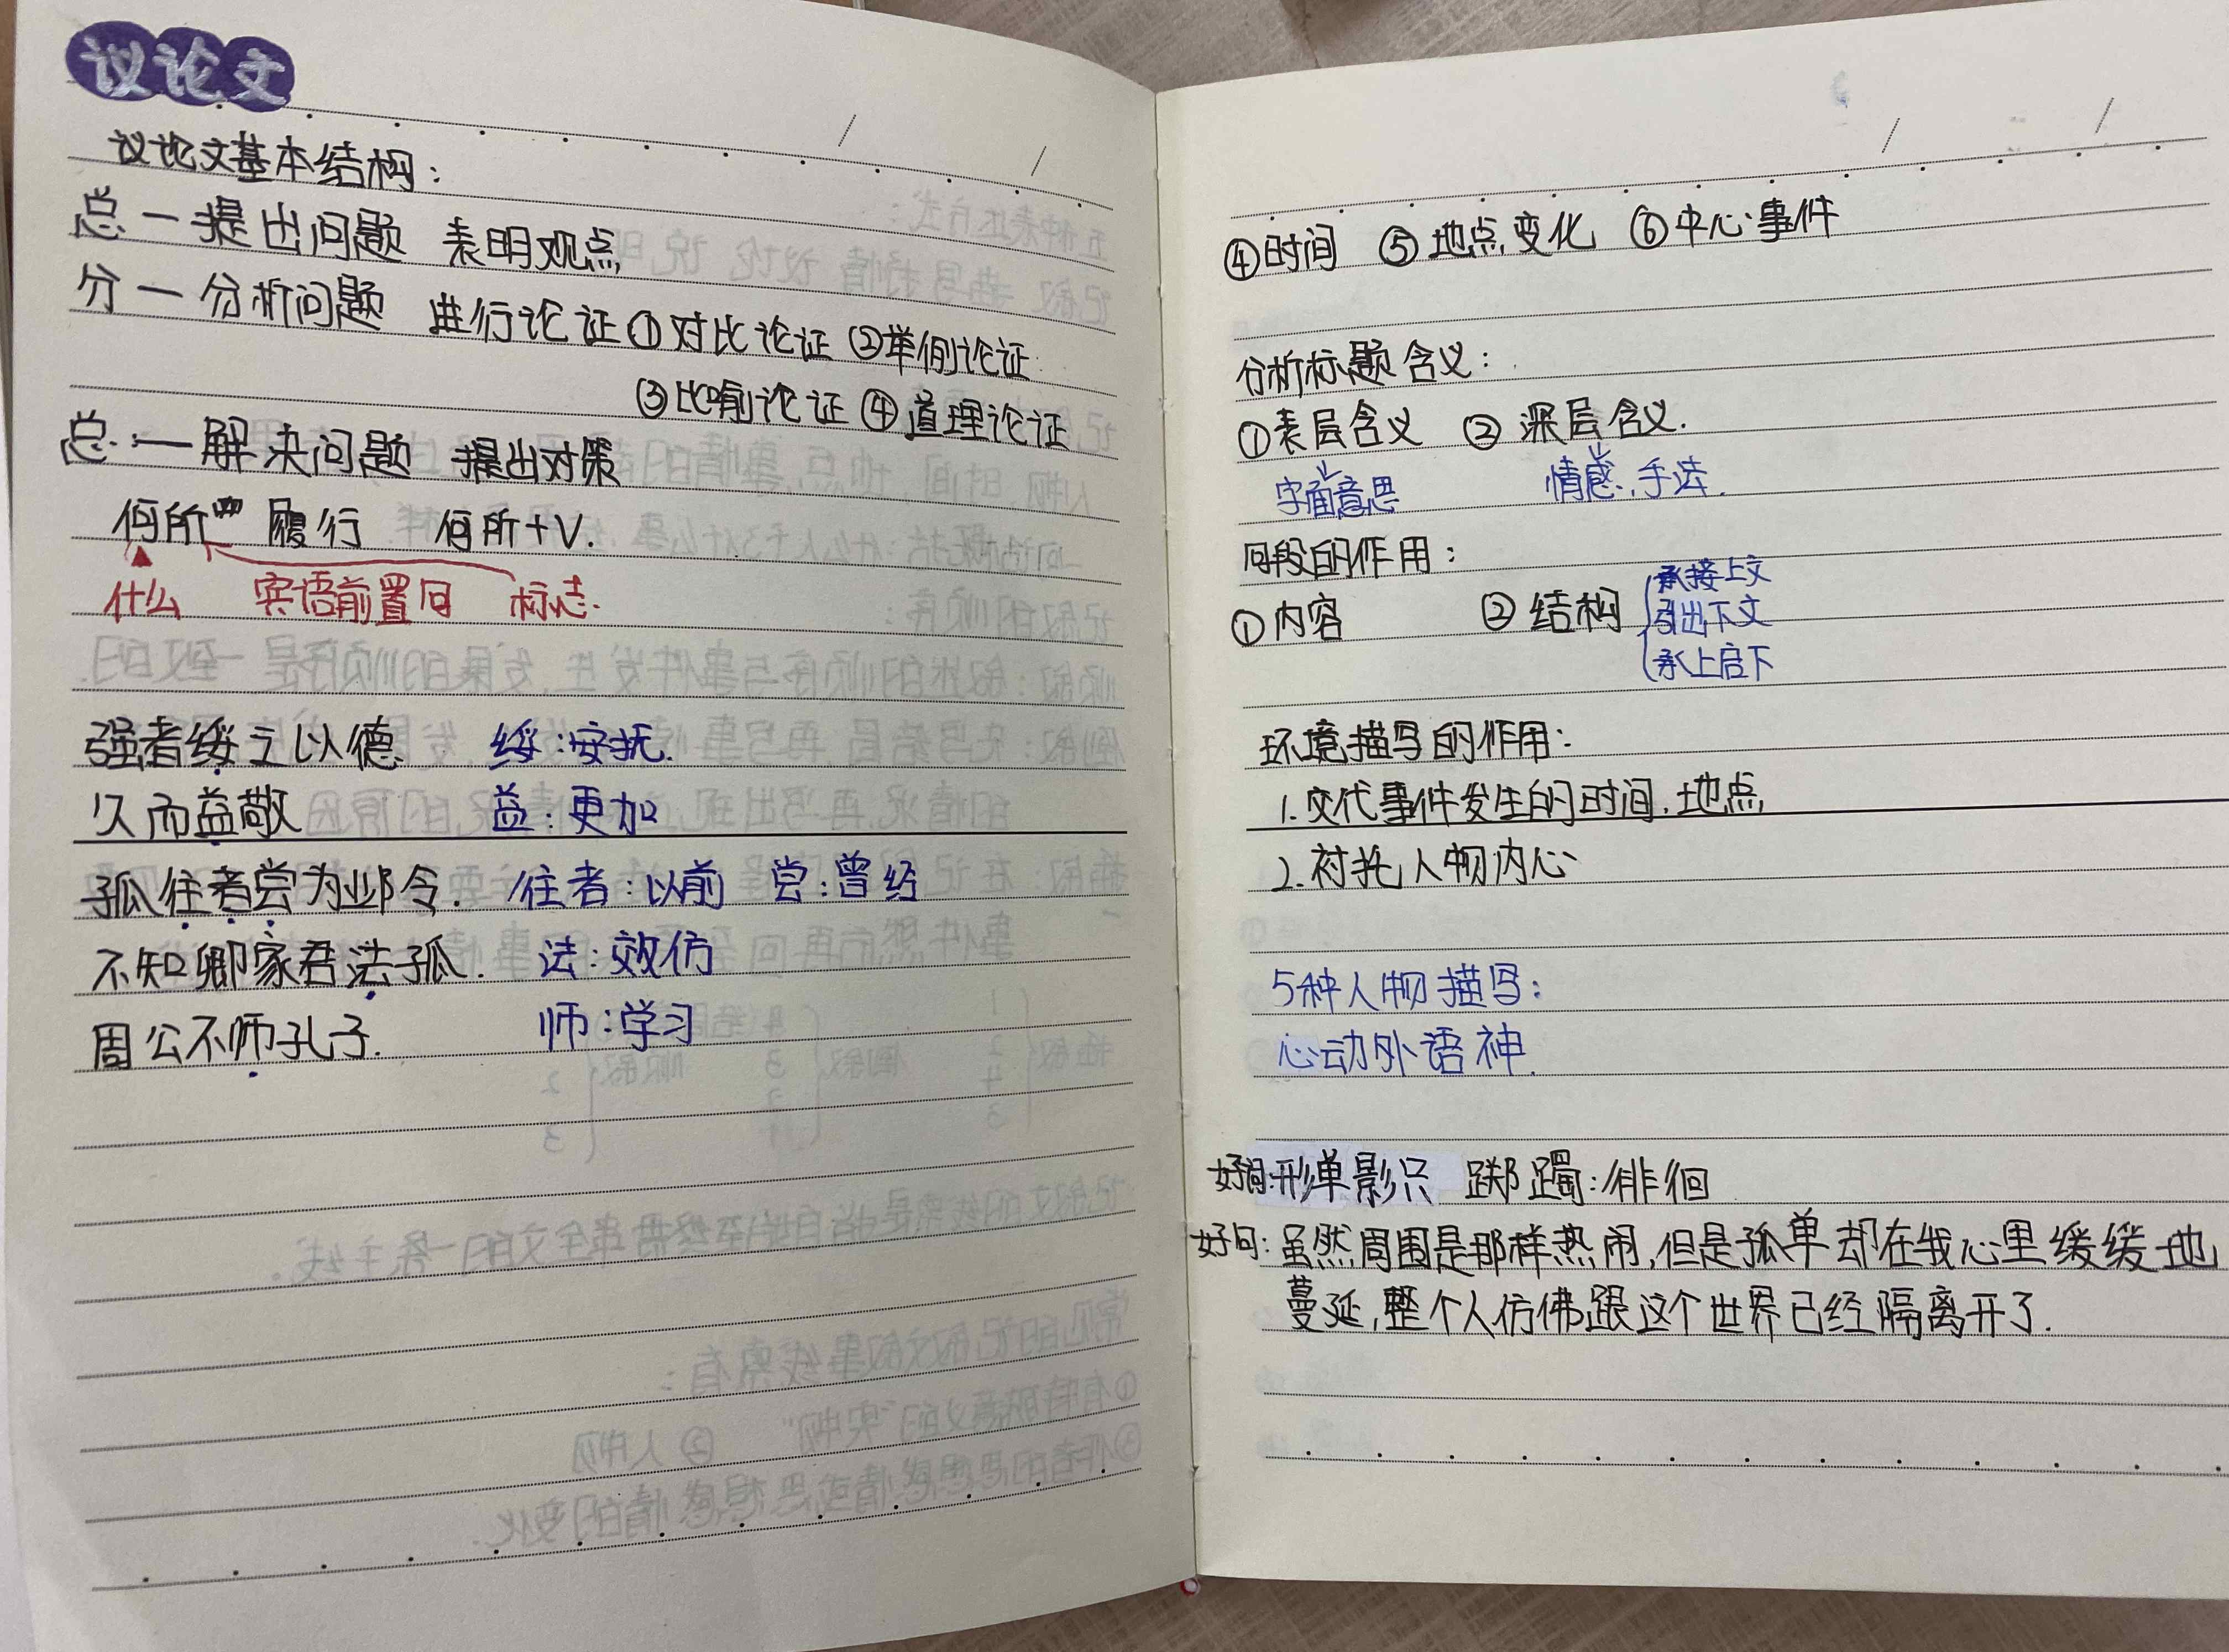 议论文
议论文基本结构：
总一提出问题 表明观点
分一分析问题 进行论证①对比论证②举例论证
③比喻论证④道理论证
总一解决问题 提出对策
何所 履行 何所+V.
什么 宾语前置句 标志.
强者绥之以德. 绥：安抚.
久而益敬 益：更加
孤往者尝为邺令. 往者：以前 尝：曾经
不知卿家君法孤. 法：效仿
周公不师孔子. 师：学习
④时间 ⑤地点变化 ⑥中心事件
分析标题含义：
①表层含义 ②深层含义.
字面意思 情感，手法.
句段的作用：
①内容 ②结构
承接上文
引出下文
承上启下
环境描写的作用：
1.交代事件发生的时间.地点
2.衬托人物内心
5种人物描写：
心动外语神.
好词:形单影只 踯躅:徘徊
好句：虽然周围是那样热闹,但是孤单却在我心里缓缓地
蔓延,整个人仿佛跟这个世界已经隔离开了.